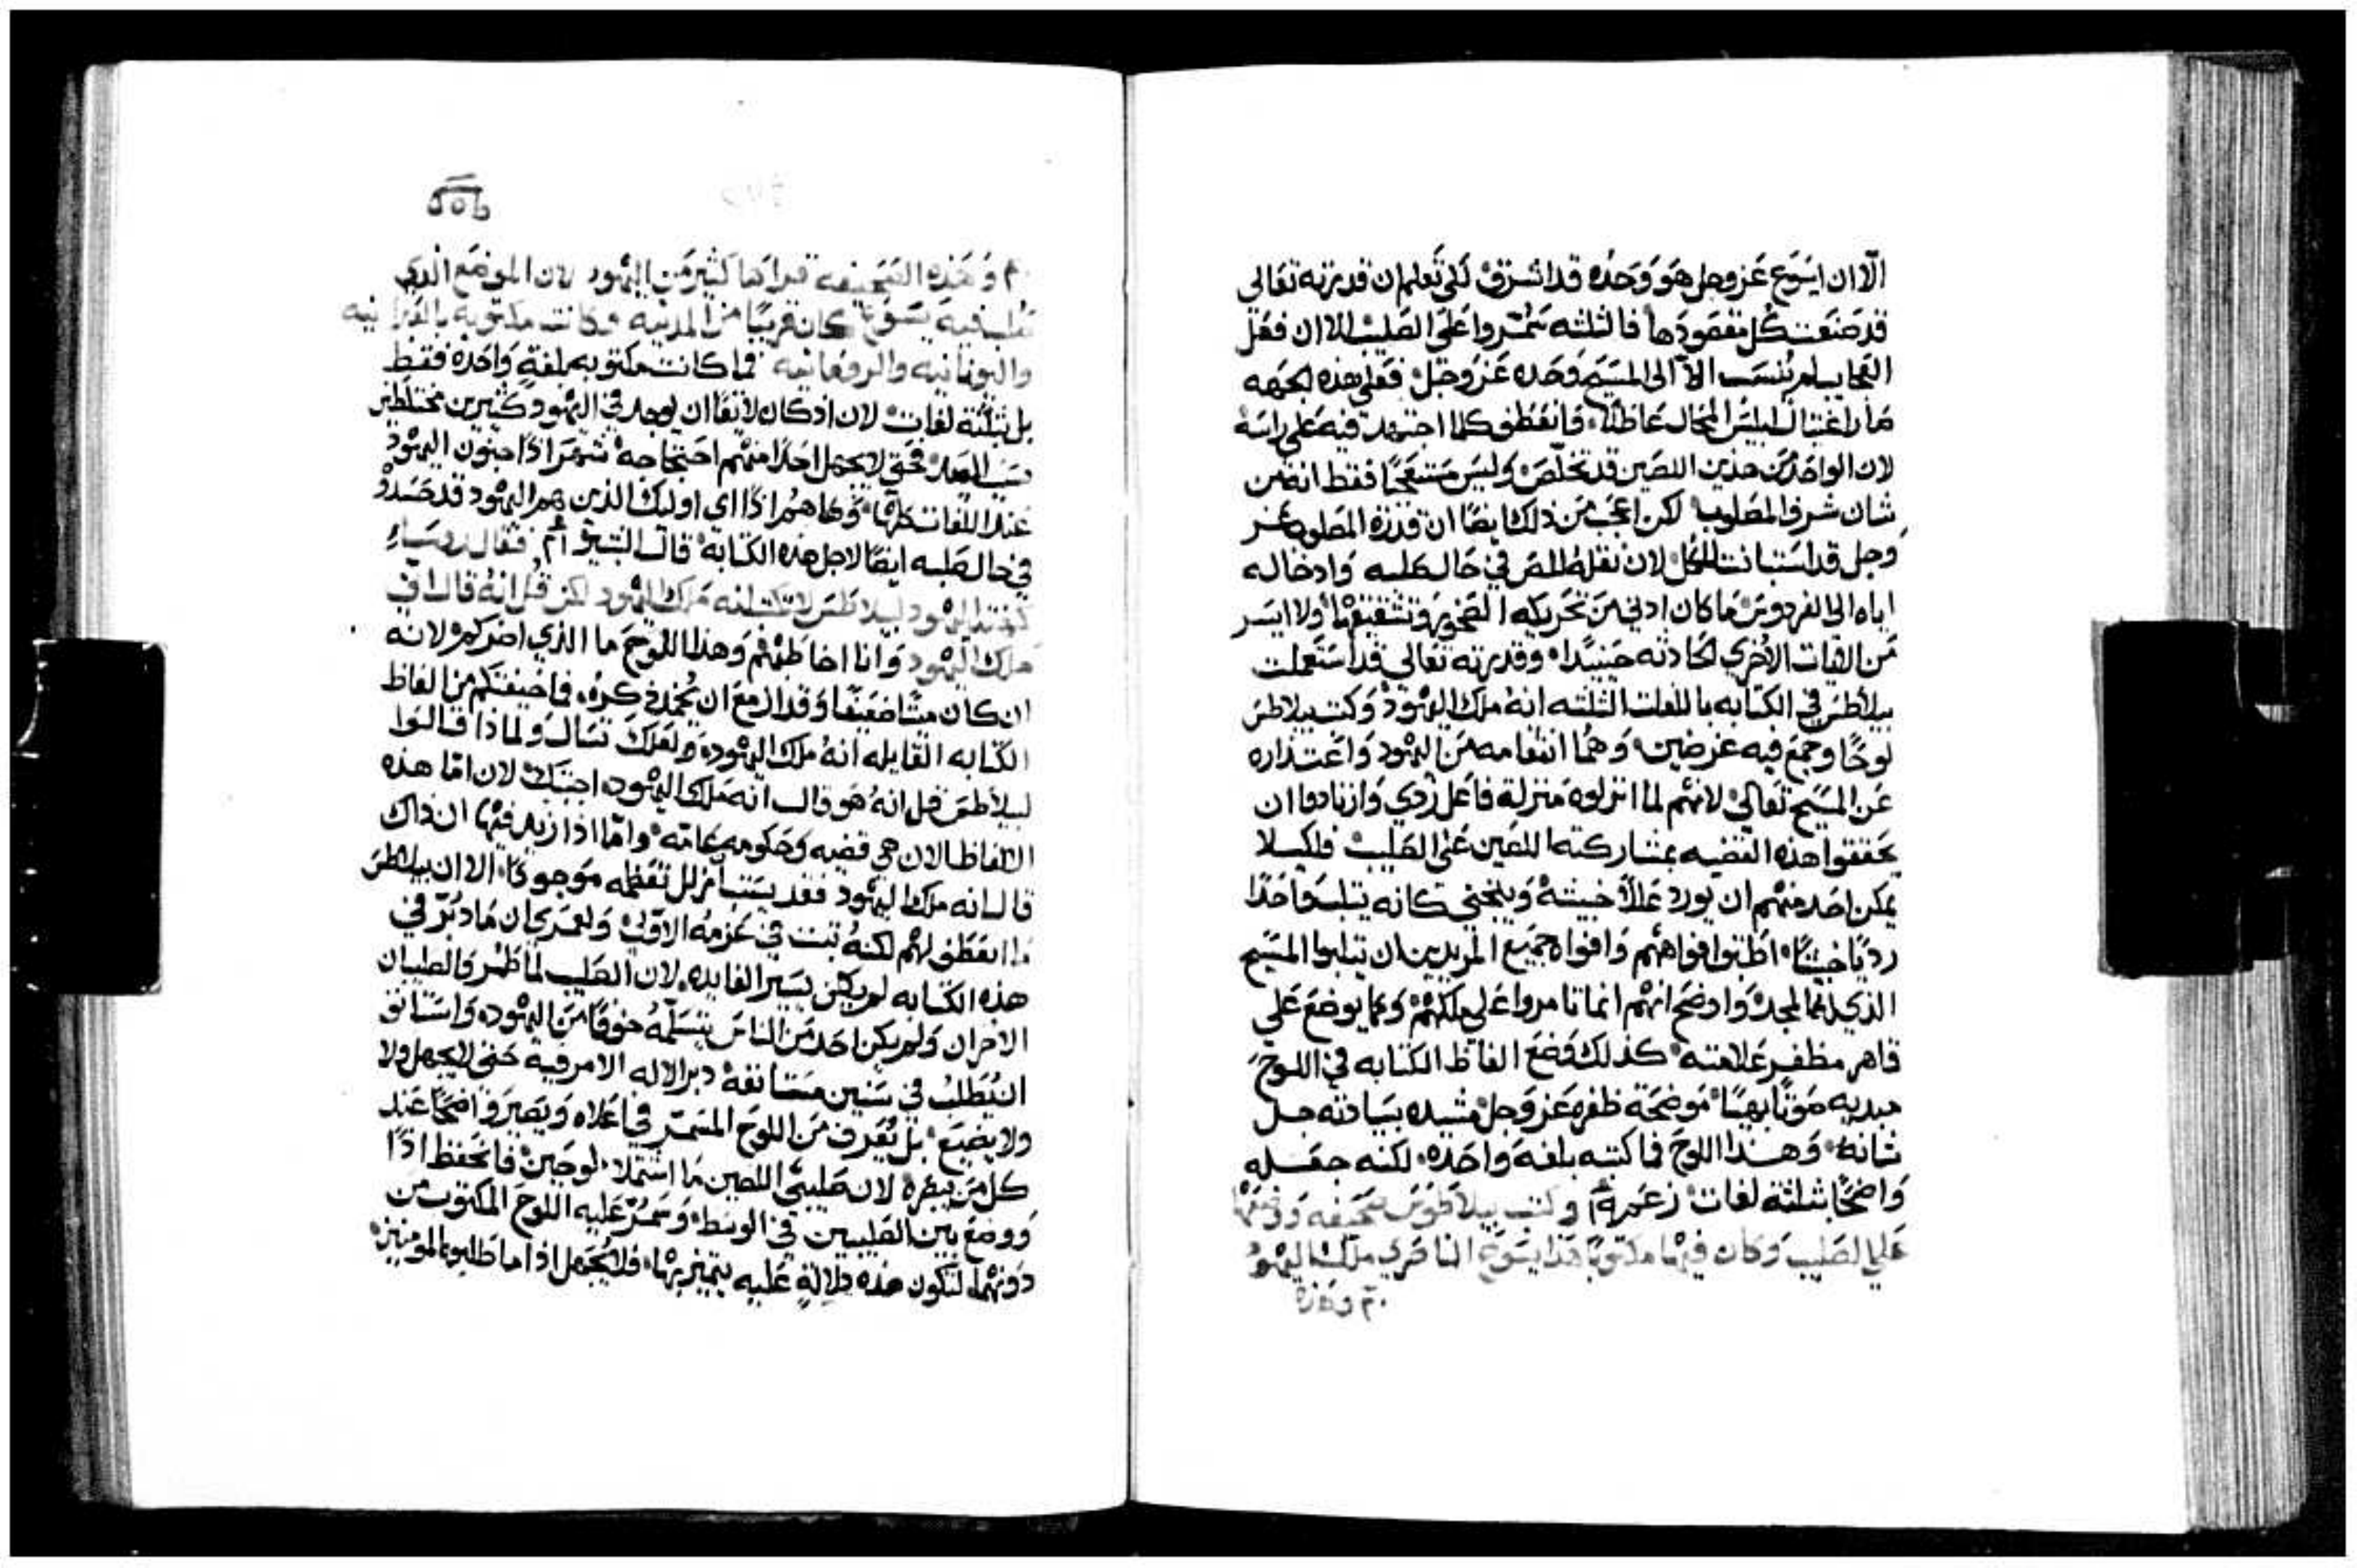 الّا ان ايسَوع عَز وجل هوَ وَحَدُه قد اشرق لكي تَعلم ان قدرته تعَالي
قد صَنعَت كل مقصُودَها فالثلثه سَمُّروا عَلى الصَليب الا ان فعَل
العَجايب لم يُنسَب الّا الى المسَيح وَحَده عَز وَجَل فعَلى هذه الجهَه
صَار اغتيال ابليسَ المحَال عَاطلًا وَانعَطف كلما اجتهد فيه عَلى راسَه
لان الواحَد مَن هذين اللصَين قد تخَلصَ وليسَ مستعجبًا فقط انه مَن
شان شرف المصَلوب لكن اعجَب مَن ذلك ايضًا ان قدرة المصَلوب عَز
وجل قد استبانت للكل لان نقله اللصَ في حَال صَلبه وَادخاله
اياه الى الفردوسَ مَا كان ادني مَن تحَريكه الصَخور وتشقيقها ولا ايسَر
مَن الايات الاخري الحَادثه حَينيذًا وقدرته تعَالى قد استعملت
بيلاطسَ في الكتابه باللغات الثلثه انه مَلك اليهَود وَكتب بيلاطسَ
لوحًا وجمَع فيه غرضين وَهمَا انتقامه مَن اليهود وَاعتذاره
عَن المسَيح تعَالي لانهم لما انزلوه مَنزلة فاعَل رَدي وَازدادوا ان
يحَققوا هذه القضيه بمشاركته اللصَين عَلى الصَليب فلكيلا
يمكن احَد منهم ان يورد عَللًا خبيثة وَيتجني كانه يثلب واحَدًا
رديًا خبيثًا اطبقوا افواههم وَافواه جميَع المريدين ان يثلبوا المسَيح
الذي له المجدَ وَاوضح انهم انما تامروا عَلى ملكهم وَكما يوضع عَلي
قاهر مظفر عَلامته كذلك وضع الفاظ الكتابه في اللوح
مبديه صَوتًا بهيًا مَوضحَة ظفره عَز وَجل مشيده بسَيادته جل
شانه وَهذا اللوح فما كتبه بلغه واحَده لكنه جعَله
وَاضحًا بثلثة لغات زعَم وكتب بيلاطوسَ صَحَيفه وَوضعَها
عَلى الصَليب وَكان فيها مكتوبًا هَذا يسَوع الناصَري ملك اليهود
وهَذه
وَهَذه الصَحَيفه قراهَا كثير مَن اليهَود لان الموضَع الذي
صُلب فيه يسَوع كان قريبًا من المدينه وكانت مَكتوبه بالعَبرانيه
واليونانيه والرومَانيه فما كانت مَكتوبه بلغةٍ وَاحَدة فقط
بل بثلثة لغات لان اذ كان لايقًا ان يوجد في اليهود كثيرين مختلطين
بسَبب العيد فحَتى لا يجهل احَدًا منهم احتجاجه شهَر اذًا جنون اليهَود
عَند اللغات كلها وَها هم اذًا اي اوليك الذين هم اليهَود قد حَسَدوه
في حال صَلبه ايضًا لاجل هذه الكتابة قال البشير فقال رؤسَاء
كهنة اليهود لبيلاطسَ لا تكتب انه مَلك اليهود لكن قُل انه قال اني
مَلك اليهود وَانا اخاطبهم وَهذا اللوح ما الذي اضركم لانه
ان كان مَيتًا ضعيَفًا وَقد ازمع ان يُخمد ذكره فما خيفتكم مَن الفاظ
الكتابه القايله انه ملك اليهود وَلعَلك تسَال ولماذا قالوا
لبيلاطسَ قل انه هوَ قال انه مَلك اليهود اجبتك لان امّا هذه
الالفاظ الان هي قضيه وَحكومه عَامّه وامّا اذا زيد فيها ان ذاك
قال انه ملك اليهود فقد يسَتبان زلل تعَظمه مَوجودًا الا ان بيلاطسَ
ما انعَطف لهم لكنه ثبت في عَزمه الاول وَلعَمري ان مَا دبّر في
هذه الكتابه لم يكن يسَير الفايده لان الصَليب لما طُمر وَالصَلبيان
الاخران وَلم يكن احَد مَن الناسَ يتسَلمه خوفًا مَن اليهود وَاستانف
ان يُطَلب في سَنين مستانفه دبر الاله الامر فيه حَتى لا يجهل ولا
ولا يضيَع بل يُعَرف مَن اللوح المسَمّر في اعَلاه وَيصَير وَاضحًا عَند
كل مَن يبصره لان صَليبَي اللصَين مَا اشتملا لوحَين فانحَفظ اذًا
وَوضع بين الصَليبين في الوسَط وَسَمُر عَليه اللوح المكتوب من
دونهما لتكون هذه دلالة عَليه يتميز بها فلا يُجهل اذا ما طلبوه المومنين